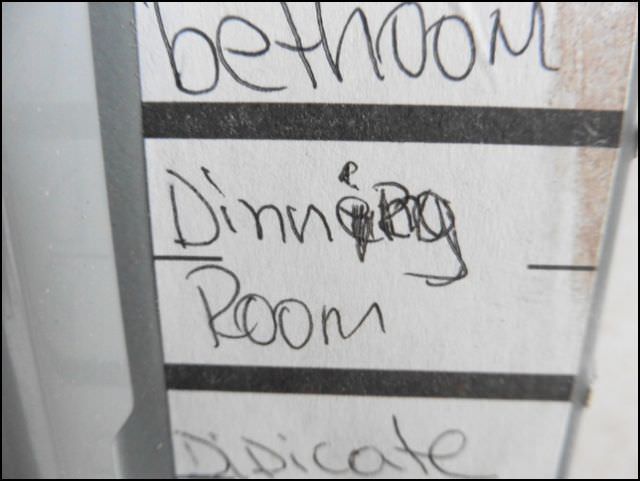 bethoom
Dinning
Room
Didicate